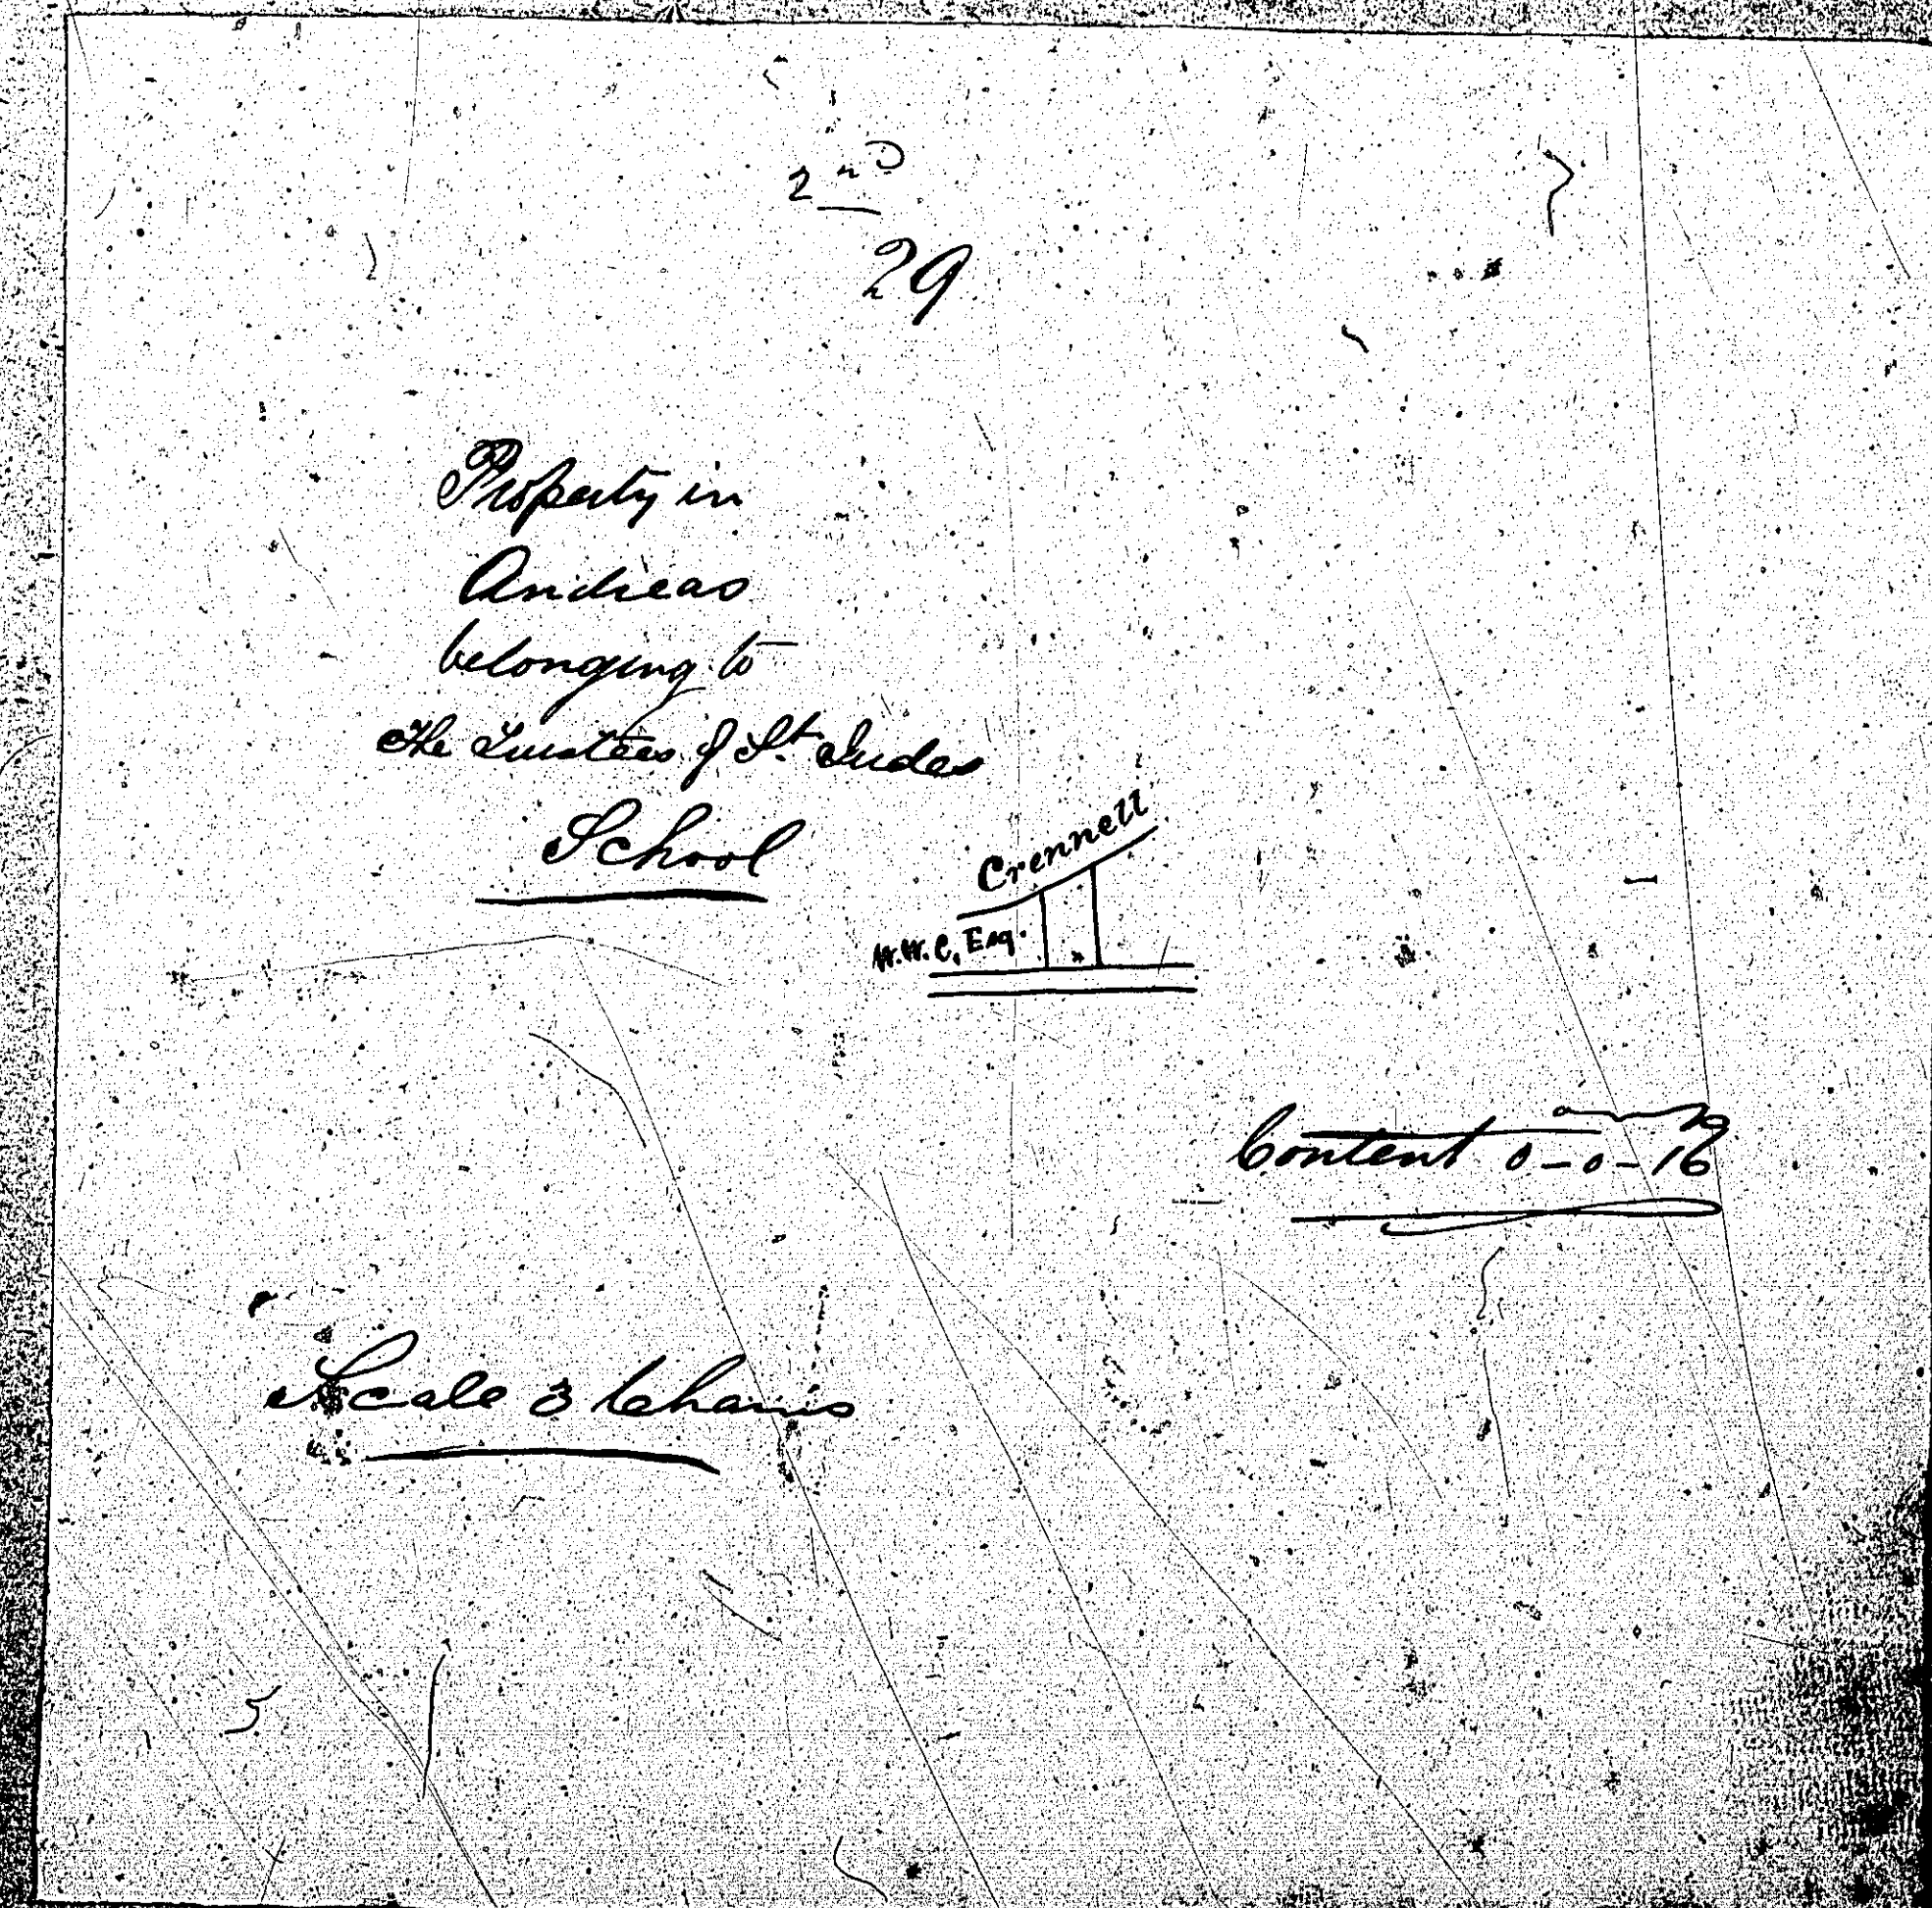 2nd
29
Property in
Andreas
belonging to
The Trustees of St. Judes
School
Crennell
W.W.C. Esq.
Content 0-0-16
Scale 3 Chains